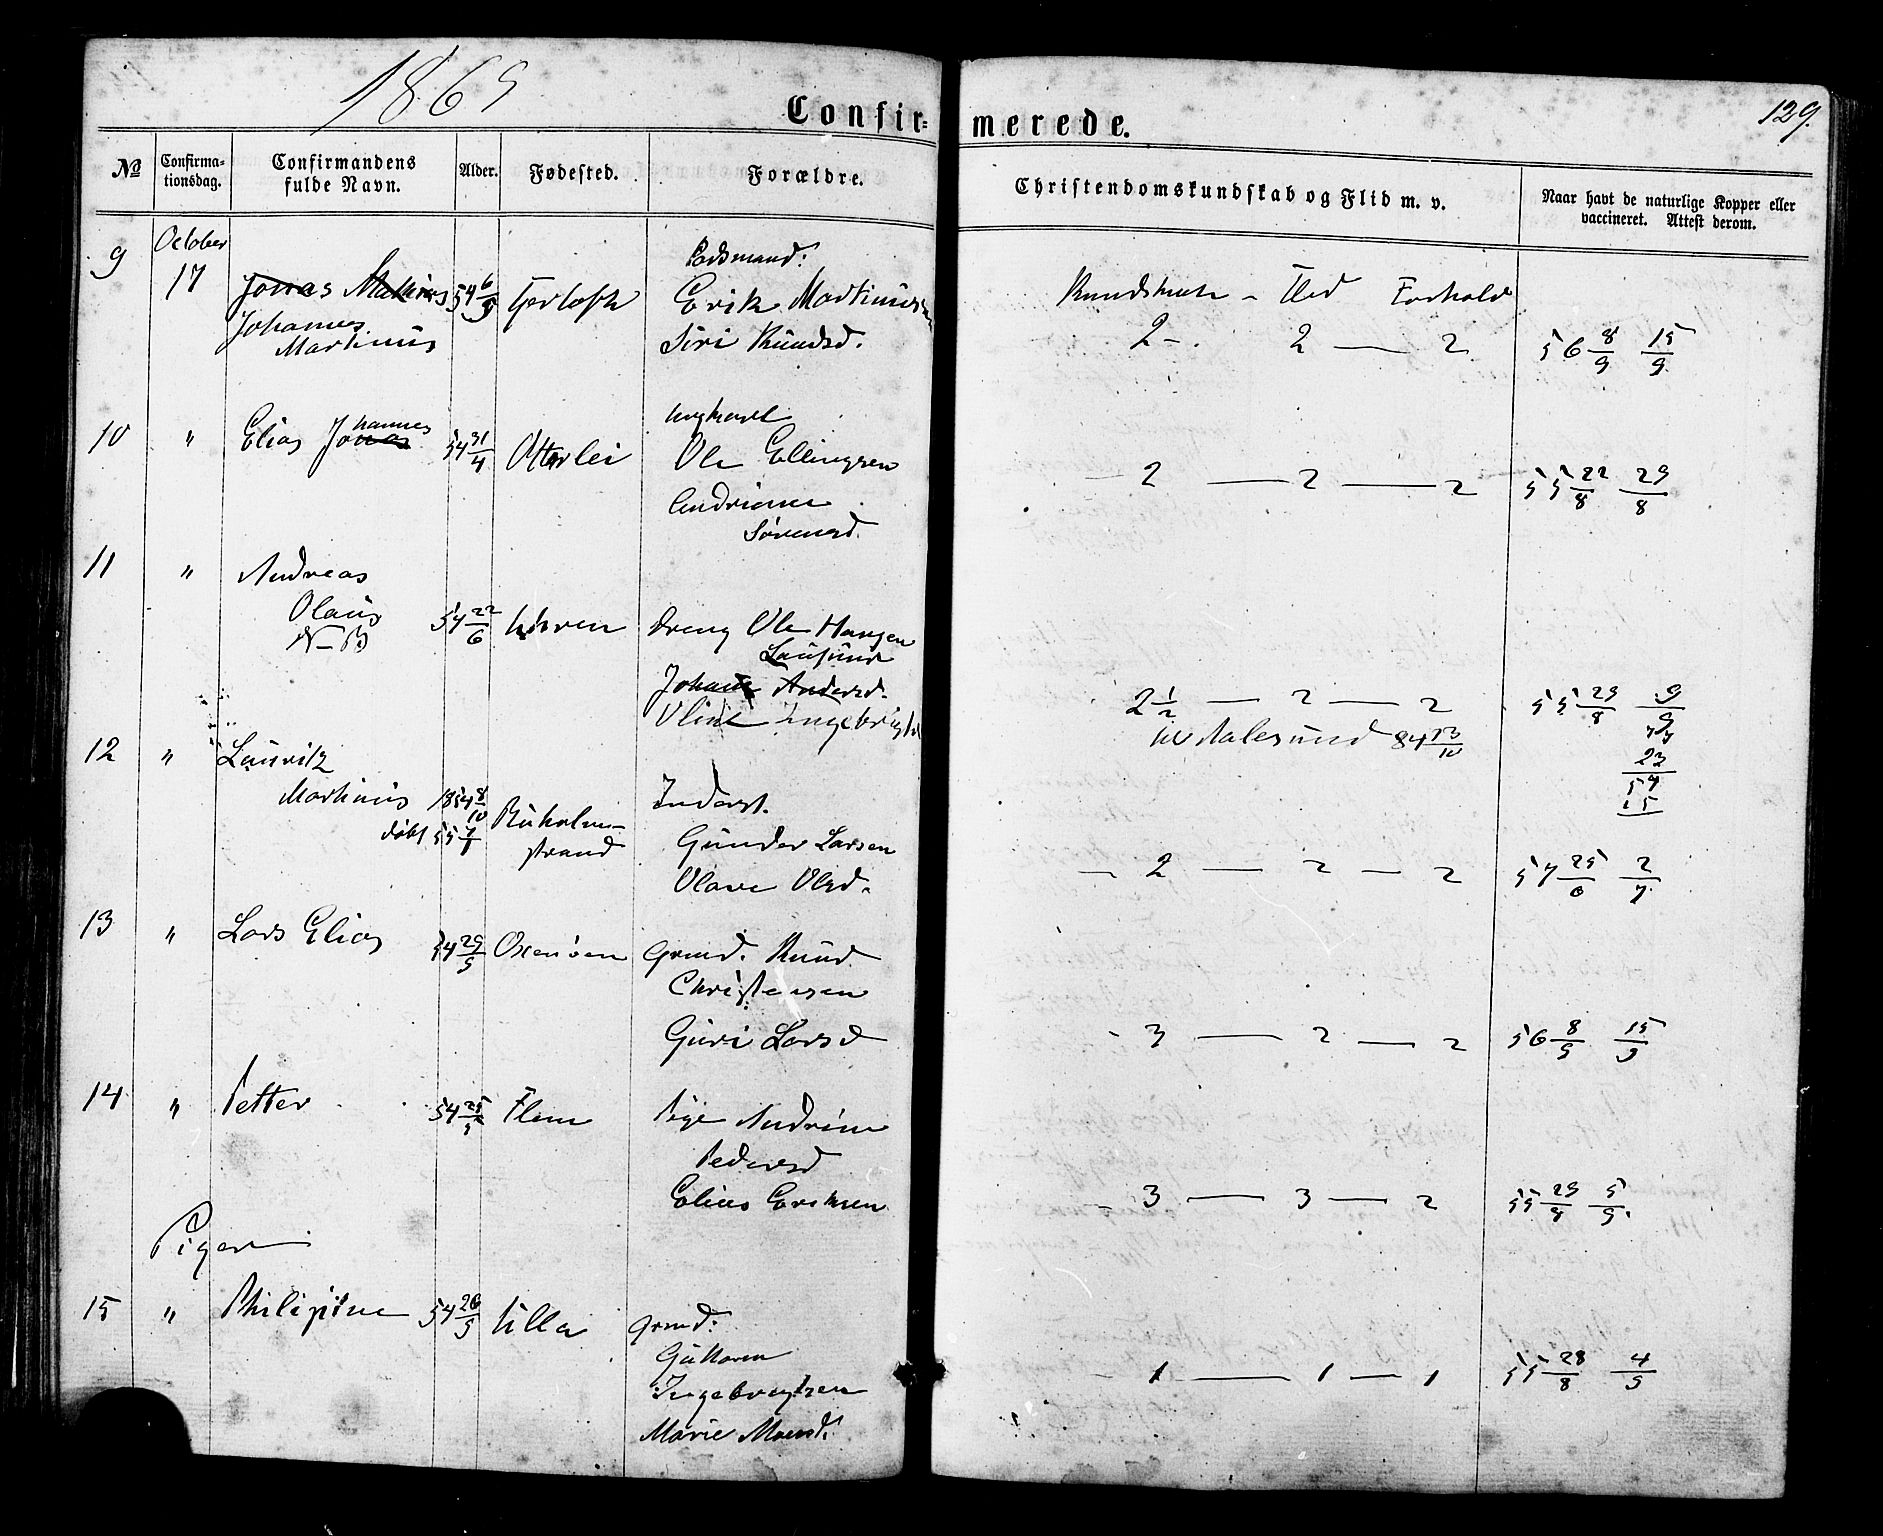 1869
129.
Confir-merede.
No
Confirma-tionsdag.
Confirmandens fulde Navn.
Alder.
Fødested.
Forældre.
Christendomskundskab og Flid m. v.
Naar havt de naturlige Kopper eller vaccineret. Attest derom.
9 October 17
Jonas Mathias
Johannes
Martinus
54 6/9
Erik Martinusen
Siri Knudsd.
Kundskab - Flid Forhold
2 - 2 — 2
56 8/9 15/9
10 " Elias Jonas
hannes
54 31/4 Otterlei
Ungkarl
Ole Ellingsen
Andriane
Sørensd.
2 — 2 — 2
55 22/8 29/8
11 " Andreas
Olaus
N-B
54 22/6
Dreng Ole Hansen
Johane Andersd.
Oline Ingebrigtsd
2 1/2 — 2 — 2
55 29/8 9/9
til Aalesund 84 13/10
12 " Lauritz
Martinus 1854 8/10
døbt 55 7/1
strand
Inderst.
Gunder Larsen
Olave Olsd.
2 — 2 — 2
57 25/6 2/7
13 " Lars Elias
54 29/5 Oxenøen
Grmd. Knud
Christensen
Guri Larsd
3 — 2 — 2
56 8/9 15/9
14 " Petter
54 Flem
Pige Andrine
Pedersd
Elias Eriksen
3 — 3 — 2
55 29/8 5/9.
Piger
15 " Philipine 54 26/5 Ulla
Grmd.
Guttorm
Ingebrigtsen
Marie Monsd.
1 — 1 — 1
55 28/8 4/9